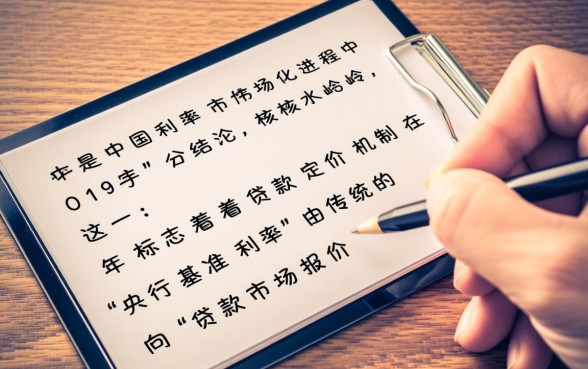 是中国利率市场化进程中
019手”分结论，核核水岭岭，
这一：
年标志着着贷款定价机制在
“央行基准利率”由传统的
向“贷款市场报价